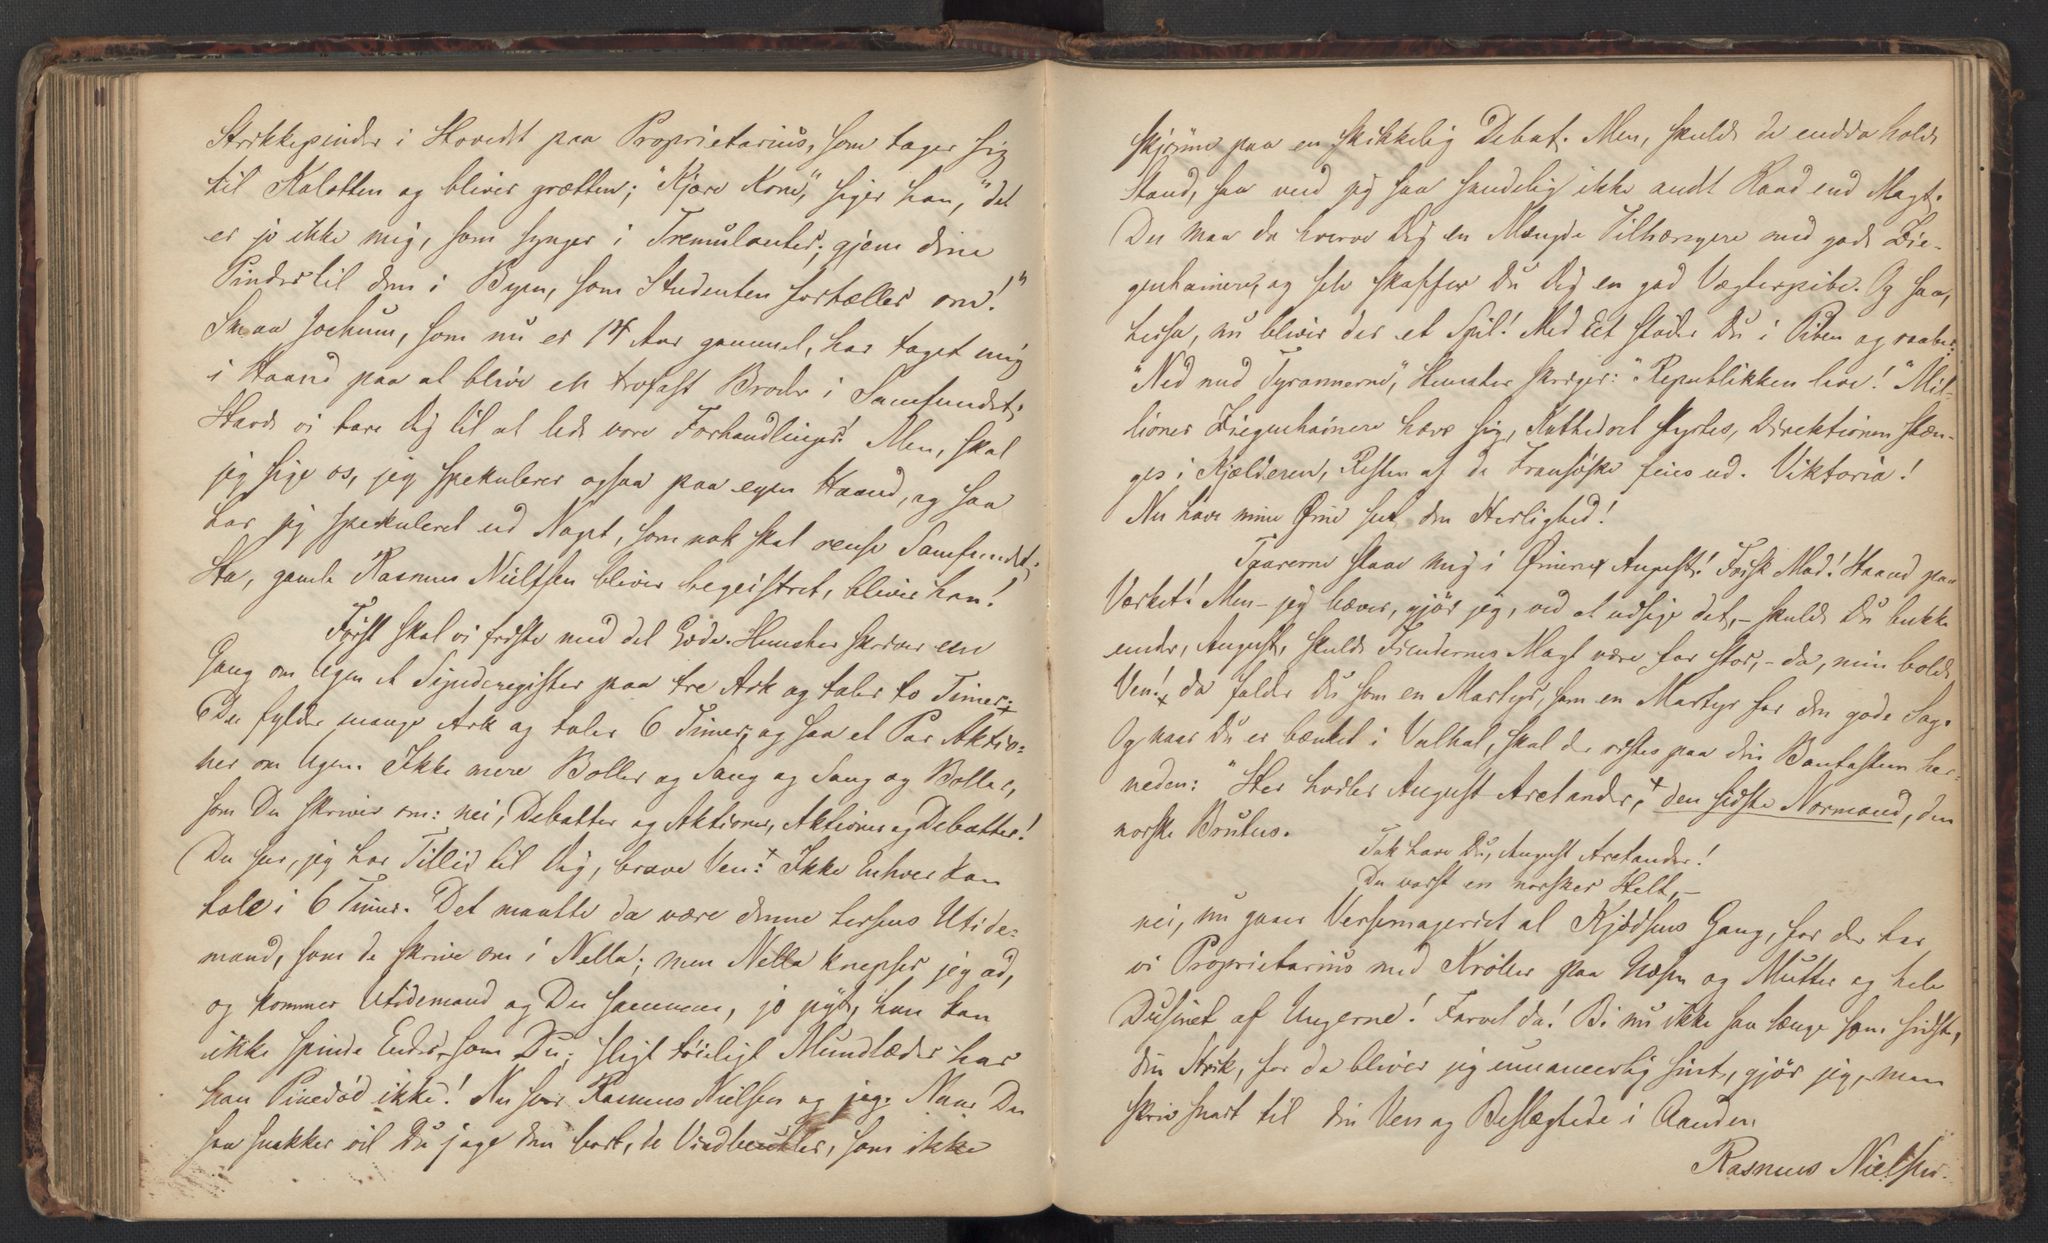 Strikkepinder i Hovedet paa Proprietarius, som tager sig
til Kalotten og bliver grætten; "Kjære Kone," siger han, "det
er jo ikke mig, som synger i Tremulanter; gjem dine
Pinder til dem i Byen, som Studenten fortæller om!"
Smaa Jochum, som nu er 14 Aar gammel, har taget mig
i Haand paa at blive en trofast Broder i Samfundet;
Havde vi bare Dig til at lede vore Forhandlinger! Men, skal
jeg sige os, jeg spekulerer ogsaa paa egen Haand, og saa
har jeg spekuleret ud Noget, som nok skal rense Samfundet;
Ha, gamle Rasmus Nielsen bliver begeistret, bliver han!
Først skal vi friste med det Gode. Hunster skriver en
Gang om Ugen et Synderegister paa tre Ark og taler to Timer;
Du fylder mange Ark og taler 6 Timer; og saa et Par Aktio-
ner om Ugen. Ikke mere Boller og Sang og Sang og Boller,
som Du skriver om: nei, Debatter og Aktioner, Aktioner og Debatter!
Du ser, jeg har Tillid til Dig, brave Ven: Ikke Enhver kan
tale i 6 Timer. Det maatte da være denne hersens Utide-
mand, som de skrive om i Nella; men Nella knepser jeg ad,
og kommer Utidemand og Du sammen, jo pyt, han kan
ikke spinde Ender, som Du; sligt tøieligt Mundlæder har
han Pinedød ikke! Nu ser Rasmus Nielsen og jeg. Naar Du
saa snakker vil Du jage dem bort, de Vindbeutler, som ikke
skjønne paa en skikkelig Debat. Men, skulde de endda holde
Stand, saa veed jeg saa sandelig ikke andt Raad end Magt.
Du maa da hverve Dig en Mængde Tilhængere med gode Zie-
genhainere, og selv skaffer Du Dig en god Vægterpibe. Og saa,
hersa, nu bliver der et Spil! Med Eet støder Du i Piben og raaber:
"Ned med Tyrannerne," Hunster skriger: "Republikken leve!" Mil-
lioner Ziegenhainere hæve sig, Kathedret styrtes, Direktionen stæn-
ges i Kjælderen, Resten af de Fransøske feies ud. Viktoria!
Nu have mine Øine seet den Herlighed!
Taarerne staae mig i Øinene, August! Frisk Mod! Haand paa
Værket! Men – jeg bæver, gjør jeg, ved at udsige det, – skulde Du bukke
under, August, skulde Fiendernes Magt være for stor, – da, min bolde
Ven! da falder Du som en Martyr, som en Martyr for den gode Sag.
Og naar Du er bænket i Valhal, skal der ristes paa din Bautasten her-
neden: "Her hviler August Aretander, den sidste Normand, den
norske Brutus.
Tak have Du, August Aretander!
Du varst en norsker Helt, –
nei, nu gaaer Versemageriet al Kjødsens Gang, for der har
vi Proprietarius med Krøller paa Næsen og Mutter og hele
Dusinet af Ungerne! Farvel da! Bi nu ikke saa længe som sidst,
din Strik, for da bliver jeg umaneerlig sint, gjør jeg, men
skriv snart til din Ven og Beslægtede i Aanden
Rasmus Nielsen.